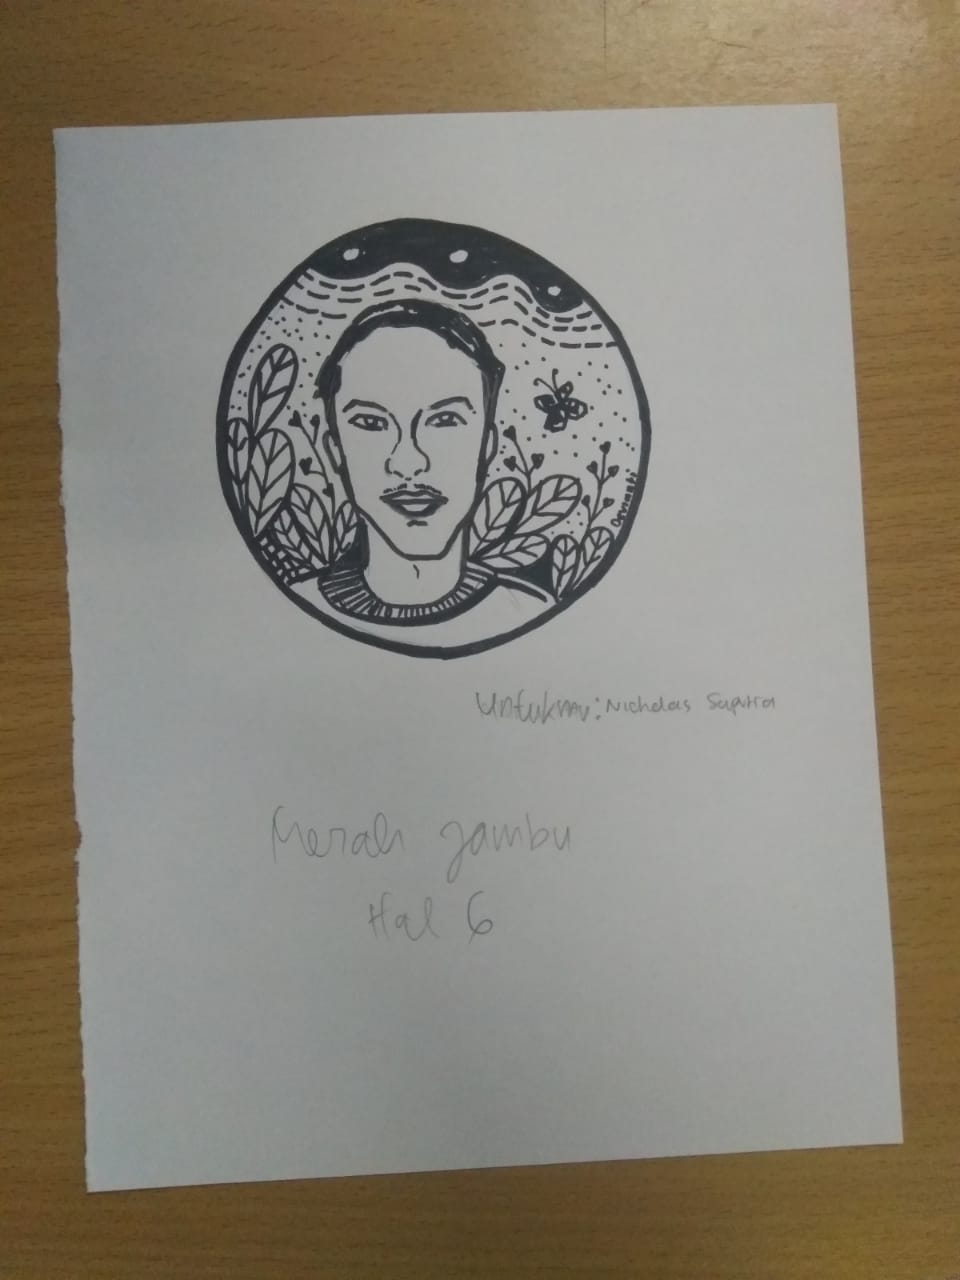 Untukmu: Nicholas Saputra
Merah Jambu
Hal 6